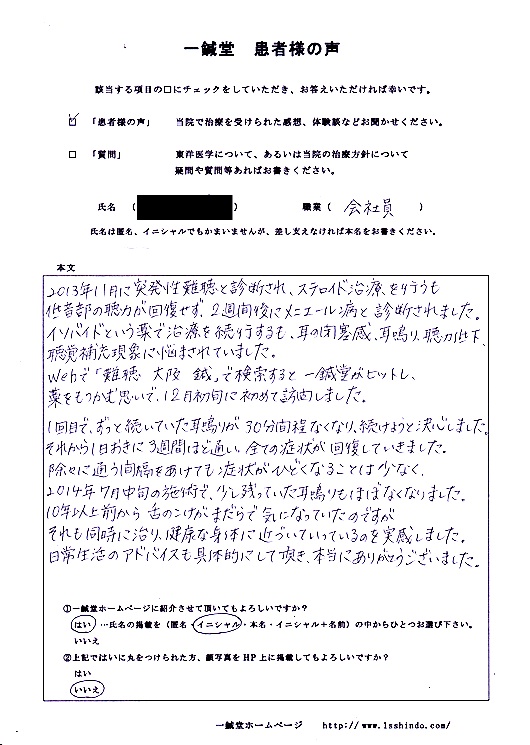 一鍼堂 患者様の声
該当する項目の□にチェックをしていただき、お答えいただければ幸いです。
☑ 「患者様の声」 当院で治療を受けられた感想、体験談などお聞かせください。
□ 「質問」 東洋医学について、あるいは当院の治療方針について
疑問や質問等あればお書きください。
氏名 ( ) 職業 ( 会社員 )
氏名は匿名、イニシャルでもかまいませんが、差し支えなければ本名をお書きください。
本文
2013年11月に突発性難聴と診断され、ステロイド治療を行うも
低音部の聴力が回復せず、2週間後にメニエール病と診断されました。
イソバイドという薬で治療を続行するも、耳の閉塞感、耳鳴り、聴力低下、
聴覚補充現象に悩まされていました。
Webで「難聴 大阪 鍼」で検索すると一鍼堂がヒットし、
藁をもつかむ思いで、12月初旬に初めて訪問しました。
1回目で、ずっと続いていた耳鳴りが30分間程なくなり、続けようと決心しました。
それから1日おきに3週間ほど通い、全ての症状が回復していきました。
除々に通う間隔をあけても症状がひどくなることは少なく、
2014年7月中旬の施術で、少し残っていた耳鳴りもほぼなくなりました。
10年以上前から舌のこけがまだらで気になっていたのですが
それも同時に治り、健康な身体に近づいていっているのを実感しました。
日常生活のアドバイスも具体的にして頂き、本当にありがとうございました。
①一鍼堂ホームページに紹介させて頂いてもよろしいですか？
はい …氏名の掲載を（匿名・イニシャル・本名・イニシャル＋名前）の中からひとつお選び下さい。
いいえ
②上記ではいに丸をつけられた方、顔写真をHP上に掲載してもよろしいですか？
はい
いいえ
一鍼堂ホームページ http://www.1sshindo.com/